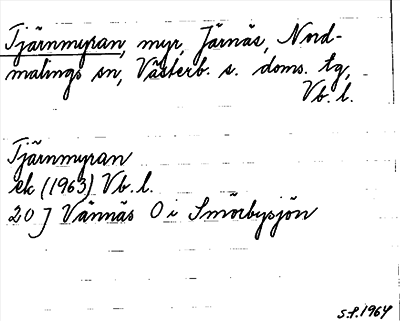 Tjärnmyran, myr, Järnäs, Nord-
malings sn, Västerb. s. doms. tg,
Vb. l.
Tjärnmyran
ek (1963) Vb. l.
20 J Vännäs O i Smörbysjön
S.P. 1964